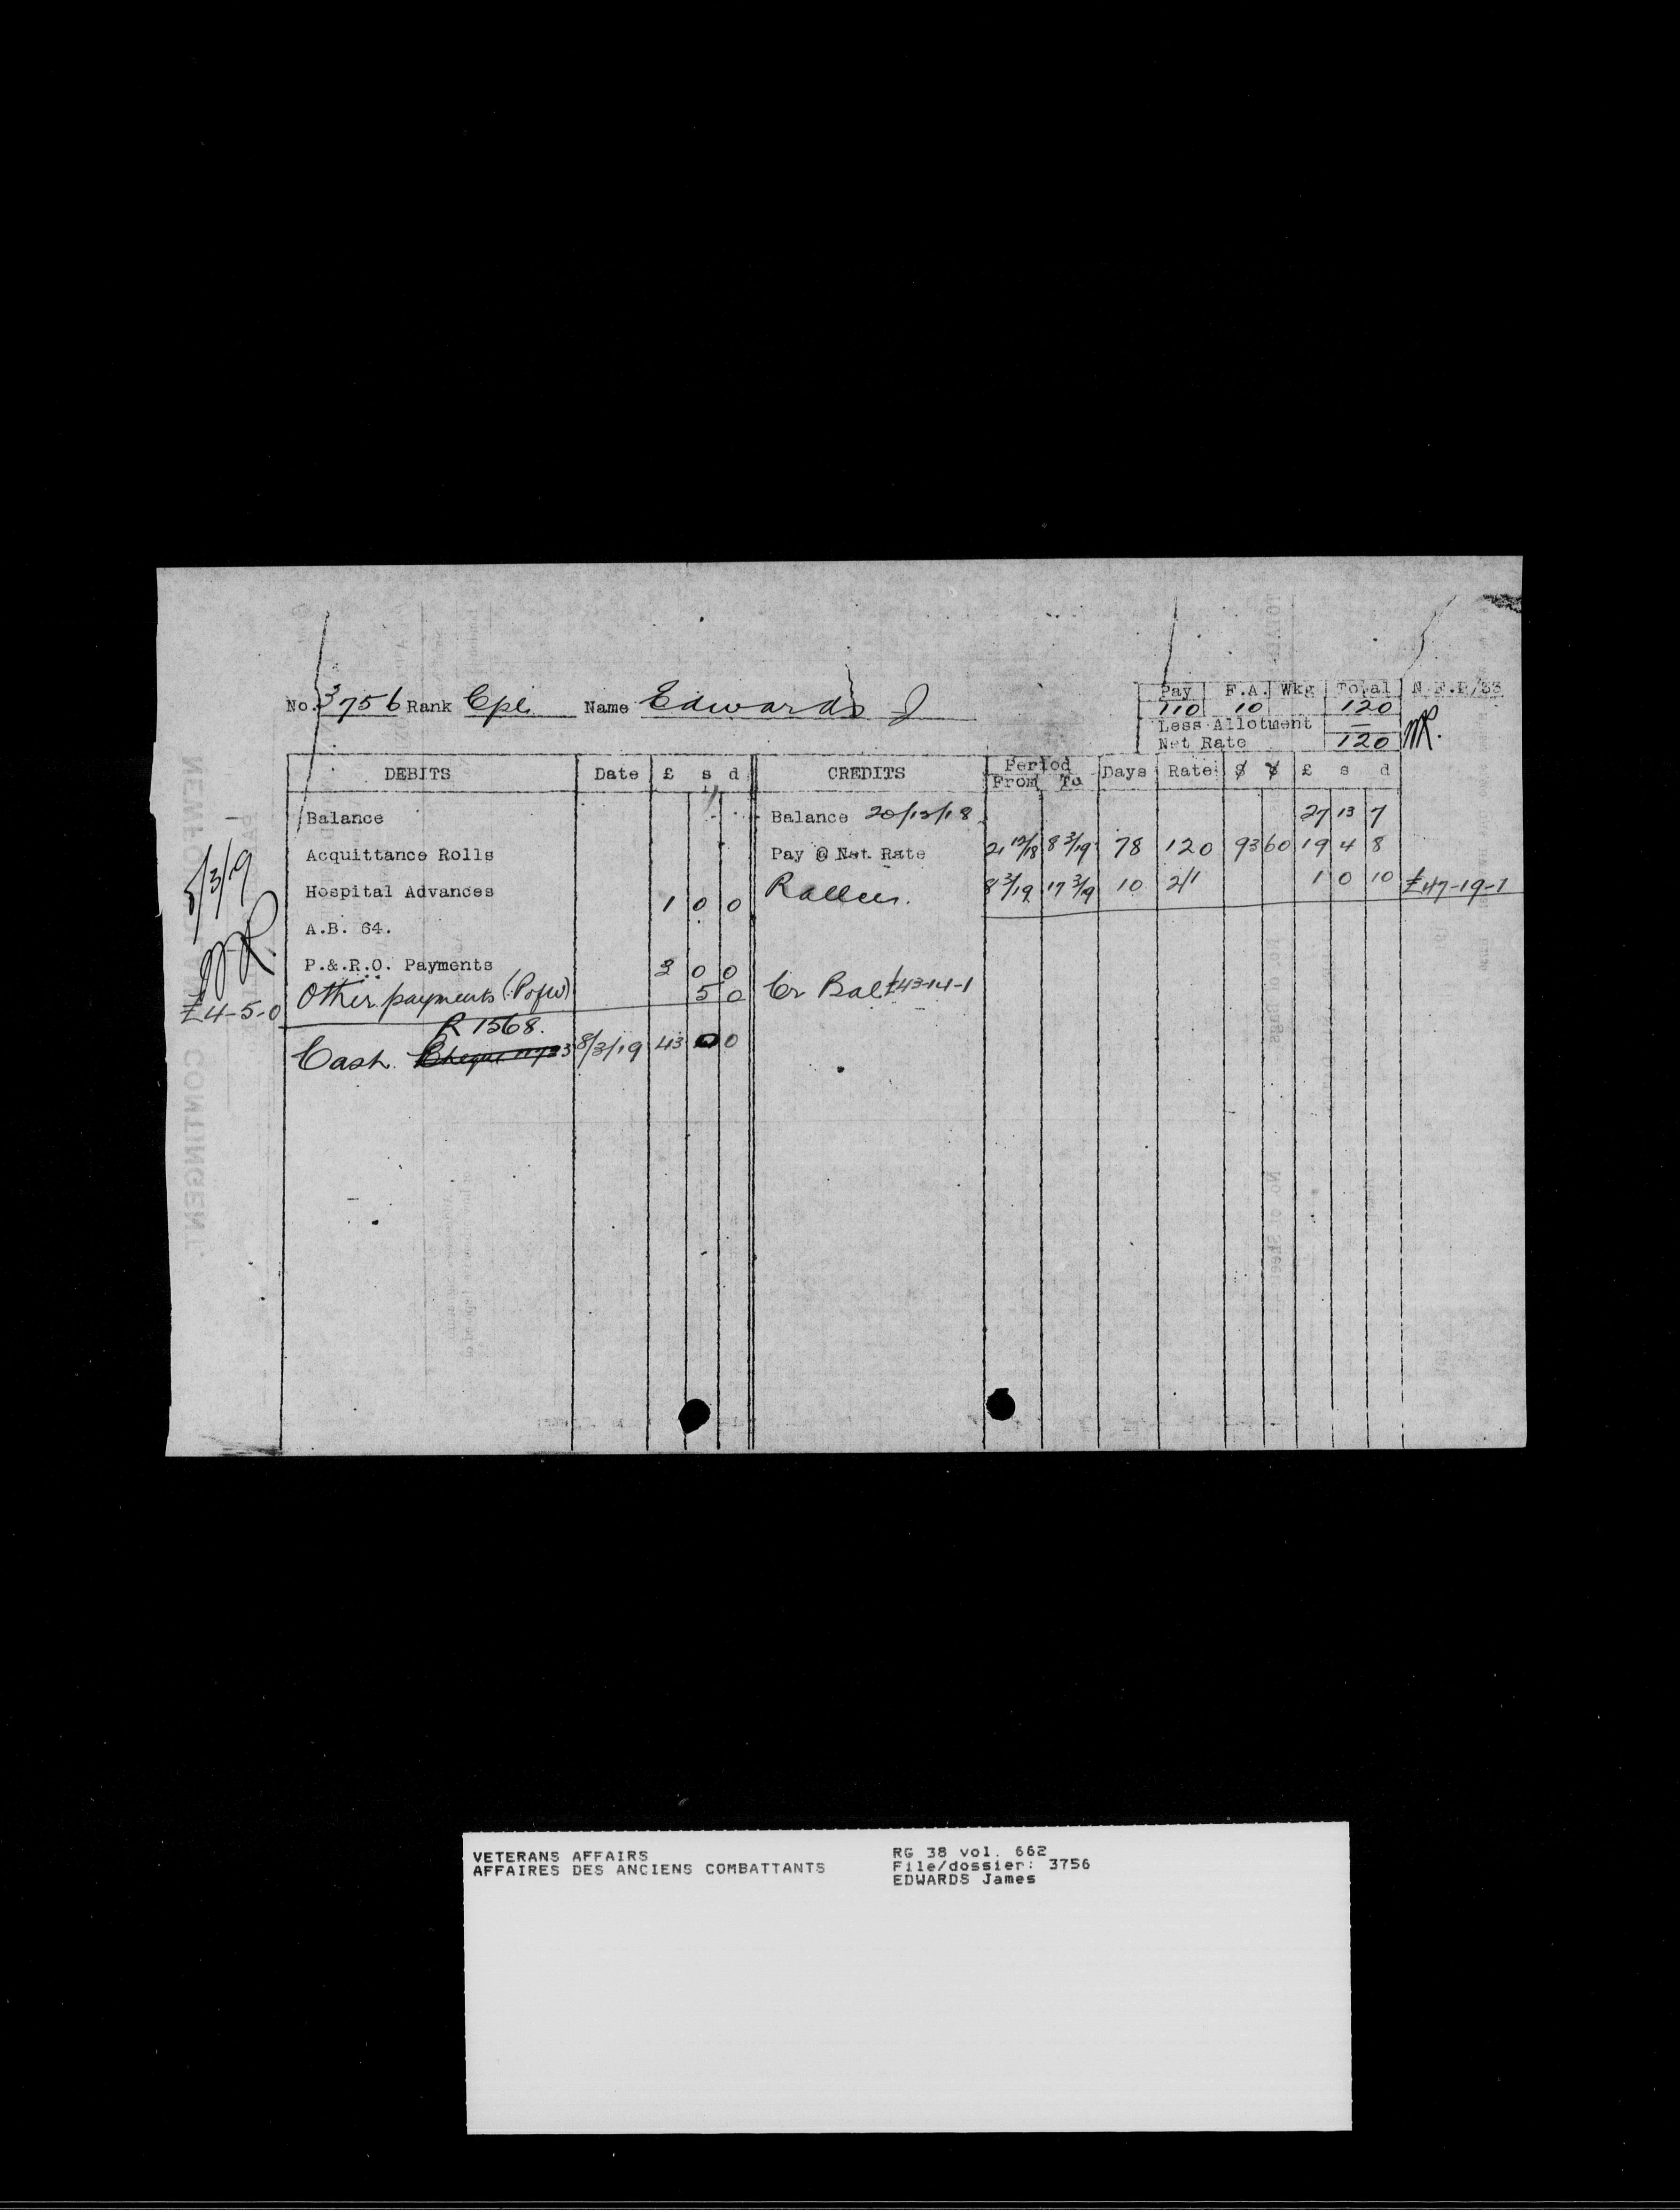 No. 3756 Rank Cpl. Name Edwards J
Pay F.A. Wkg Total N.F.P/33
110 10 120
Less Allotment —
Net Rate 120
DEBITS Date £ s d CREDITS Period From To Days Rate $ ¢ £ s d
Balance Balance 20/12/18 27 13 7
Acquittance Rolls Pay @ Net Rate 21 12/18 8 3/19 78 120 93 60 19 4 8
Hospital Advances 1 0 0 8 3/19 17 3/19 10 2/1 1 0 10 £47-19-1
A.B. 64.
P.& R.O. Payments 3 0 0
Other payments (PofW) 5 0 Cr Bal £43-14-1
£4-5-0
R 1568.
Cash. Cheque 8/3/19 43 0 0
NEWFOUNDLAND CONTINGENT.
VETERANS AFFAIRS
AFFAIRES DES ANCIENS COMBATTANTS
RG 38 vol. 662
File/dossier: 3756
EDWARDS James